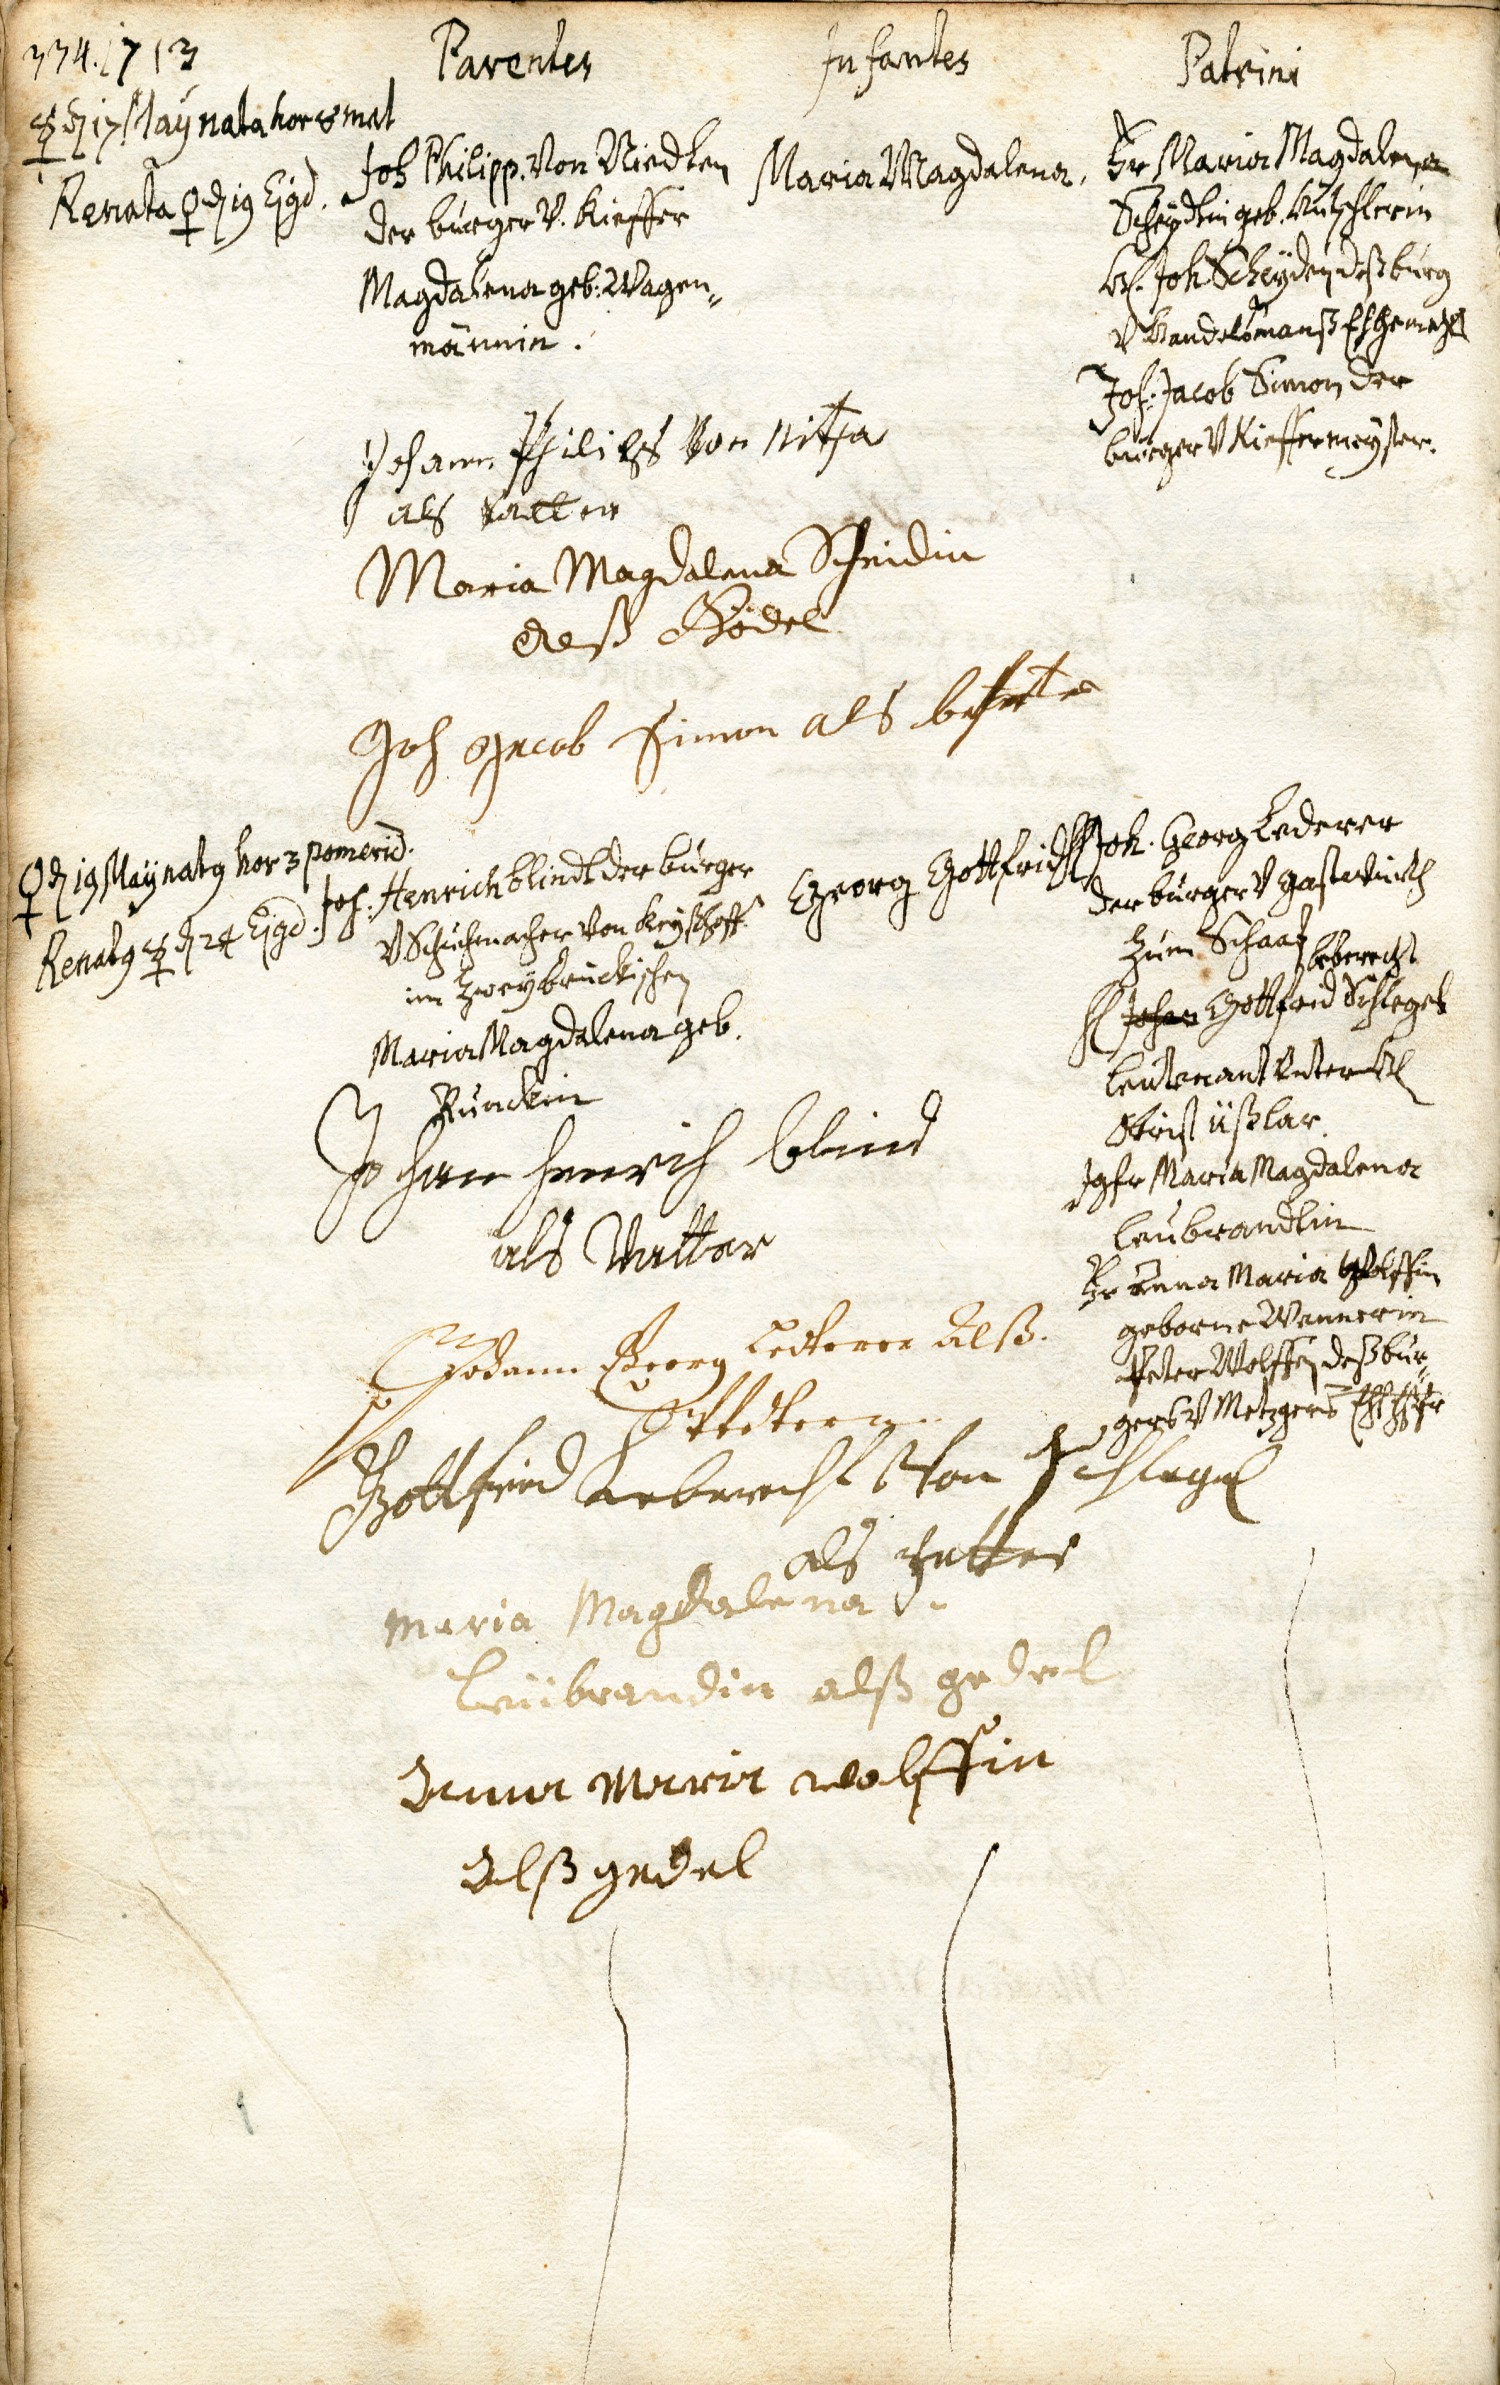 334. 1713
Parentes
Infantes
Patrini
☿ d 17 Maÿ nata hor 8 mat
Renata ♀ d 19 Ejgd.
Joh Philipp. Von Niedten
der burger V. Kieffer
Magdalena geb: Wagen„
männin.
Maria Magdalena.
Fr Maria Magdalena
Scheydtin geb.
H. Joh Scheyden deß burg
V Handelsmanß
Joh: Jacob Simon der
burger V Kieffermeyster.
Johann Philips Von
als Vatter
Maria Magdalena Scheidin
alß Gödel
Joh Jacob Simon als
♀ d 19 Maÿ natg hor 3 pomerid.
Renatg ☿ d 24 Ejgd.
Joh: Henrich blindt der burger
V Schuhmacher Von
im Zweybrückischen
Maria Magdalena geb.
Georg Gottfridt
Joh. Georg Lederer
der burger V Gastwirth
Zum Schaaf
leberecht
H Johan Gottfrid Schlegel
Leutenant Unter H
Obrist üßlar.
Jgfr Maria Magdalena
Leubrandtin
Fr Anna Maria Wolffin
geborne Wannerin
Peter Wolffen deß bur„
gers V Metzgers
Johan Henrich blind
als Vatter
Johann Georg Lederer Alß.
Gottfried Leberecht Von Schlegel
als
Maria Magdalena
Leübrandin alß gedel
Anna Maria Wolffin
Alß gedel